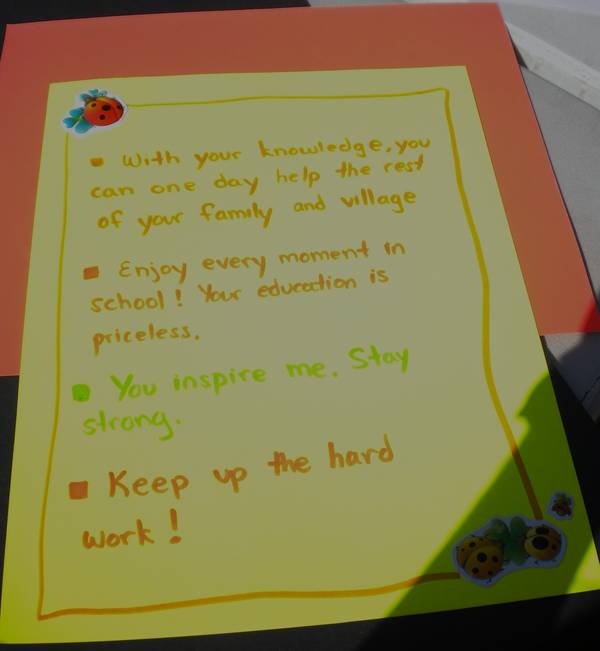 ▪ With your knowledge, you
can one day help the rest
of your family and village
▪ Enjoy every moment in
school! Your education is
priceless.
▪ You inspire me. Stay
strong.
▪ Keep up the hard
work!